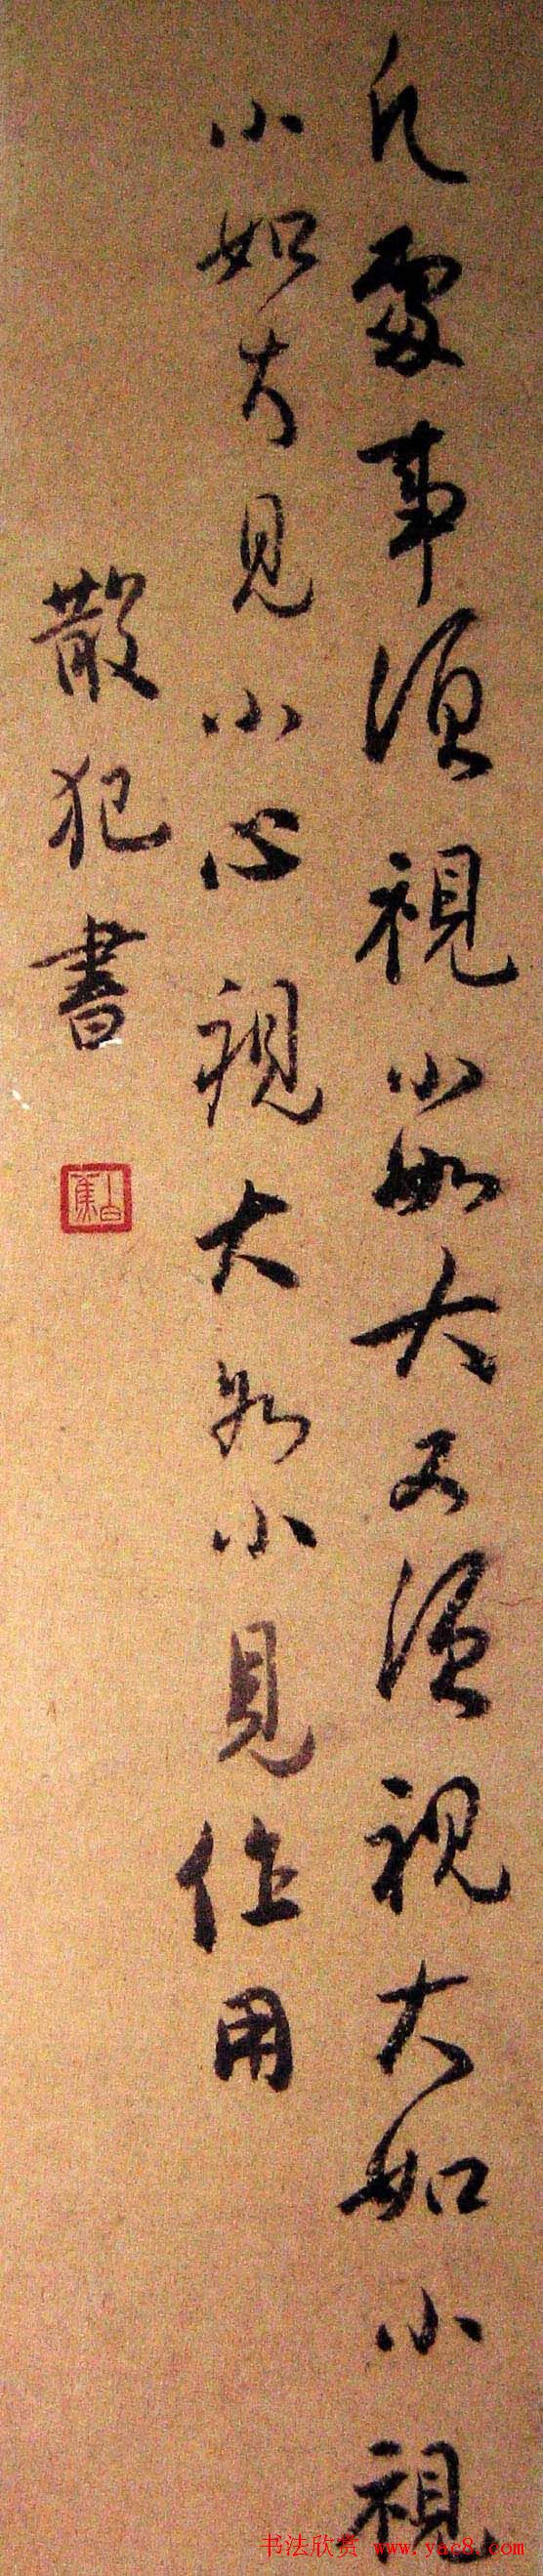 凡處事須視小如大又須視大如小視
小如大見小心視大如小見作用
散犯書
书法欣赏 www.yac8.com